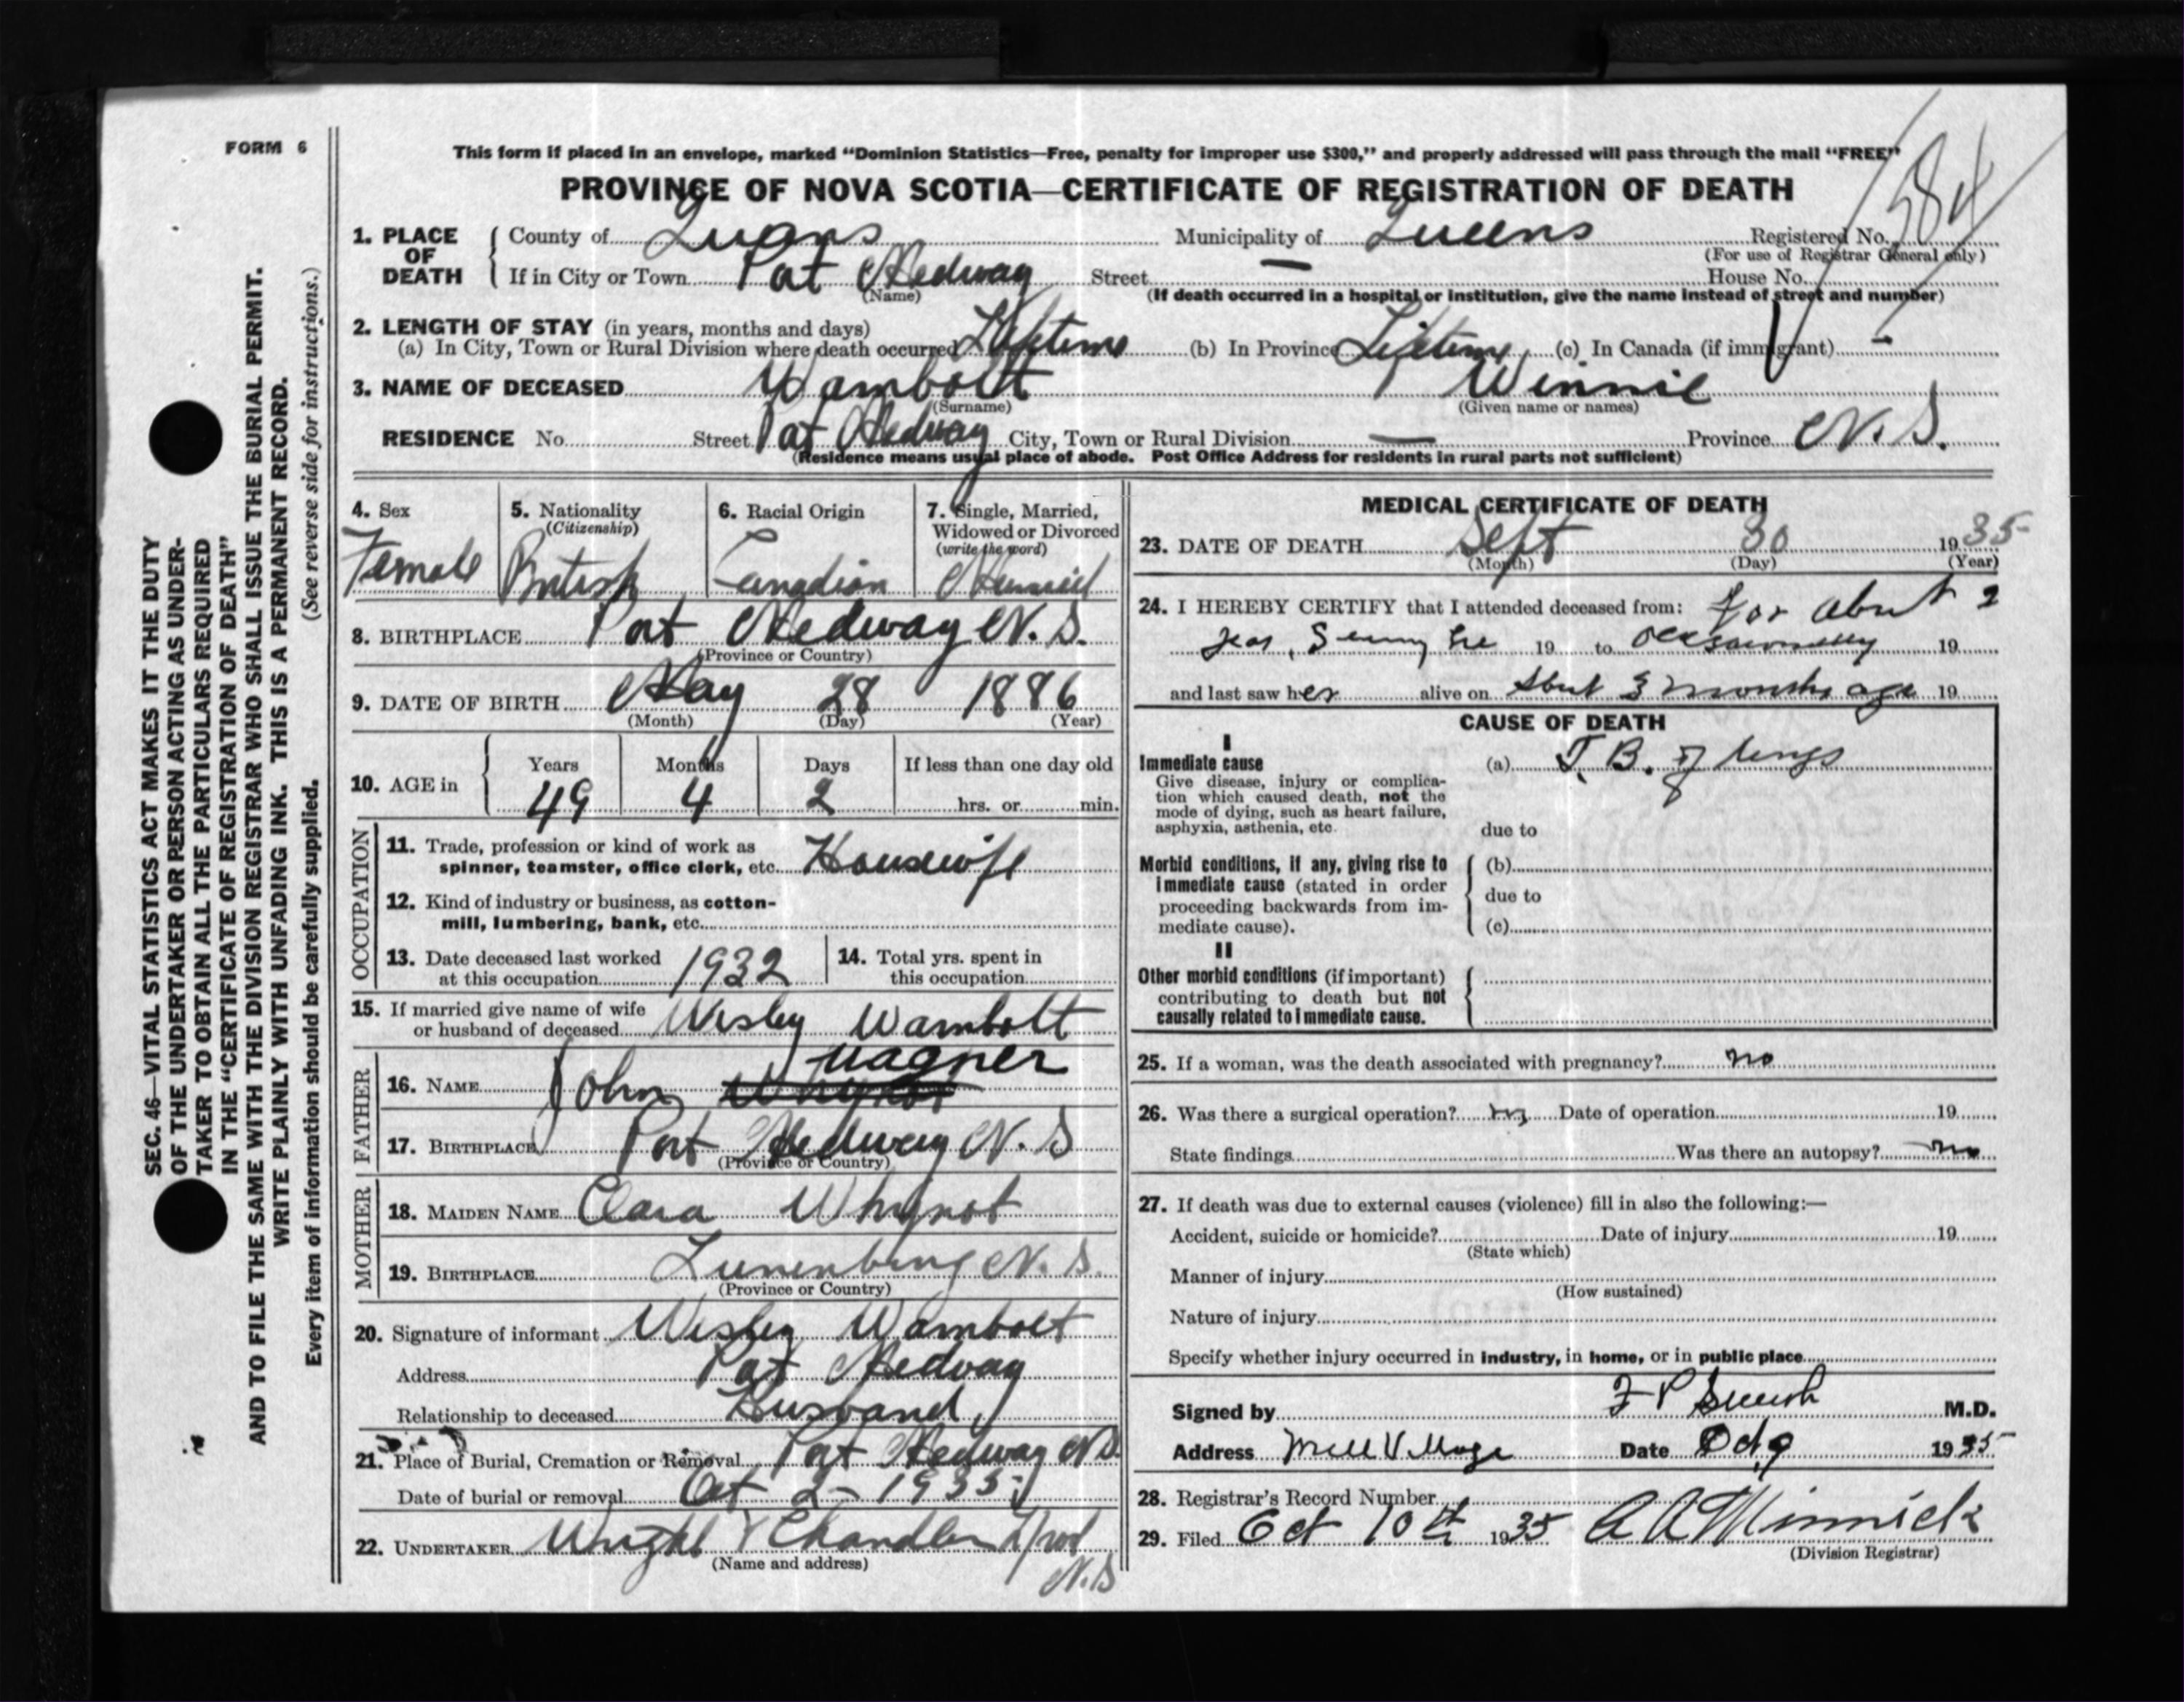 FORM 6
This form if placed in an envelope, marked "Dominion Statistics—Free, penalty for improper use $300," and properly addressed will pass through the mail "FREE"
PROVINCE OF NOVA SCOTIA—CERTIFICATE OF REGISTRATION OF DEATH
1. PLACE OF DEATH County of Queens Municipality of Queens Registered No.
(For use of Registrar General only)
If in City or Town Port Medway Street — House No.
(Name) (If death occurred in a hospital or institution, give the name instead of street and number)
2. LENGTH OF STAY (in years, months and days)
(a) In City, Town or Rural Division where death occurred Lifetime (b) In Province Lifetime (c) In Canada (if immigrant) -
3. NAME OF DECEASED Wambolt Winnie
(Surname) (Given name or names)
RESIDENCE No. Street Port Medway City, Town or Rural Division — Province N.S.
(Residence means usual place of abode. Post Office Address for residents in rural parts not sufficient)
4. Sex 5. Nationality (Citizenship) 6. Racial Origin 7. Single, Married, Widowed or Divorced (write the word)
Female British Canadian Married
8. BIRTHPLACE Port Medway N.S.
(Province or Country)
9. DATE OF BIRTH May 28 1886
(Month) (Day) (Year)
10. AGE in Years Months Days If less than one day old
49 4 2 hrs. or min.
OCCUPATION
11. Trade, profession or kind of work as
spinner, teamster, office clerk, etc. Housewife
12. Kind of industry or business, as cotton-
mill, lumbering, bank, etc.
13. Date deceased last worked at this occupation 1932 14. Total yrs. spent in this occupation
15. If married give name of wife
or husband of deceased Wesley Wambolt
FATHER
wagner
16. NAME John Whynot
17. BIRTHPLACE Port Medway N.S
(Province or Country)
MOTHER
18. MAIDEN NAME Clara Whynot
19. BIRTHPLACE Lunenburg N.S.
(Province or Country)
20. Signature of informant Wesley Wambolt
Address Port Medway
Relationship to deceased Husband
21. Place of Burial, Cremation or Removal Port Medway N.S.
Date of burial or removal Oct 2- 1935
22. UNDERTAKER Wright & Chandler N.S
(Name and address)
MEDICAL CERTIFICATE OF DEATH
23. DATE OF DEATH Sept 30 1935
(Month) (Day) (Year)
24. I HEREBY CERTIFY that I attended deceased from: for about 2
19 to occasionally 19
and last saw her alive on about 3 months ago 19
CAUSE OF DEATH
I
Immediate cause (a) T.B. of lungs
Give disease, injury or complica-
tion which caused death, not the
mode of dying, such as heart failure,
asphyxia, asthenia, etc.
due to
Morbid conditions, if any, giving rise to (b)
immediate cause (stated in order
proceeding backwards from im- due to
mediate cause). (c)
II
Other morbid conditions (if important)
contributing to death but not
causally related to immediate cause.
25. If a woman, was the death associated with pregnancy? no
26. Was there a surgical operation? no Date of operation 19
State findings Was there an autopsy? no
27. If death was due to external causes (violence) fill in also the following:—
Accident, suicide or homicide? Date of injury 19
(State which)
Manner of injury
(How sustained)
Nature of injury
Specify whether injury occurred in industry, in home, or in public place
Signed by F P Smith M.D.
Address Mill Village Date Oct 9 1935
28. Registrar's Record Number
29. Filed Oct 10th 1935 A A Minnick
(Division Registrar)
SEC. 46—VITAL STATISTICS ACT MAKES IT THE DUTY
OF THE UNDERTAKER OR PERSON ACTING AS UNDER-
TAKER TO OBTAIN ALL THE PARTICULARS REQUIRED
IN THE "CERTIFICATE OF REGISTRATION OF DEATH"
AND TO FILE THE SAME WITH THE DIVISION REGISTRAR WHO SHALL ISSUE THE BURIAL PERMIT.
WRITE PLAINLY WITH UNFADING INK. THIS IS A PERMANENT RECORD.
Every item of information should be carefully supplied. (See reverse side for instructions.)